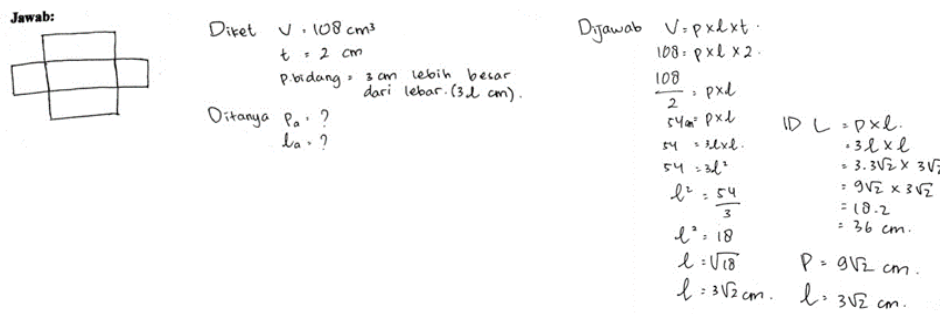 Jawab:
Diket V = 108 cm³
t = 2 cm
p.bidang = 3 cm lebih besar
dari lebar. (3l cm).
Ditanya Pₐ = ?
lₐ = ?
Dijawab V = p x l x t.
108 = p x l x 2.
108/2 = p x l
54 cm² = p x l
54 = 3l x l.
54 = 3l²
l² = 54/3
l² = 18
l = √18
l = 3√2 cm.
ID L = p x l.
= 3l x l
= 3.3√2 x 3√2
= 9√2 x 3√2
= 18.2
= 36 cm.
P = 9√2 cm.
l = 3√2 cm.